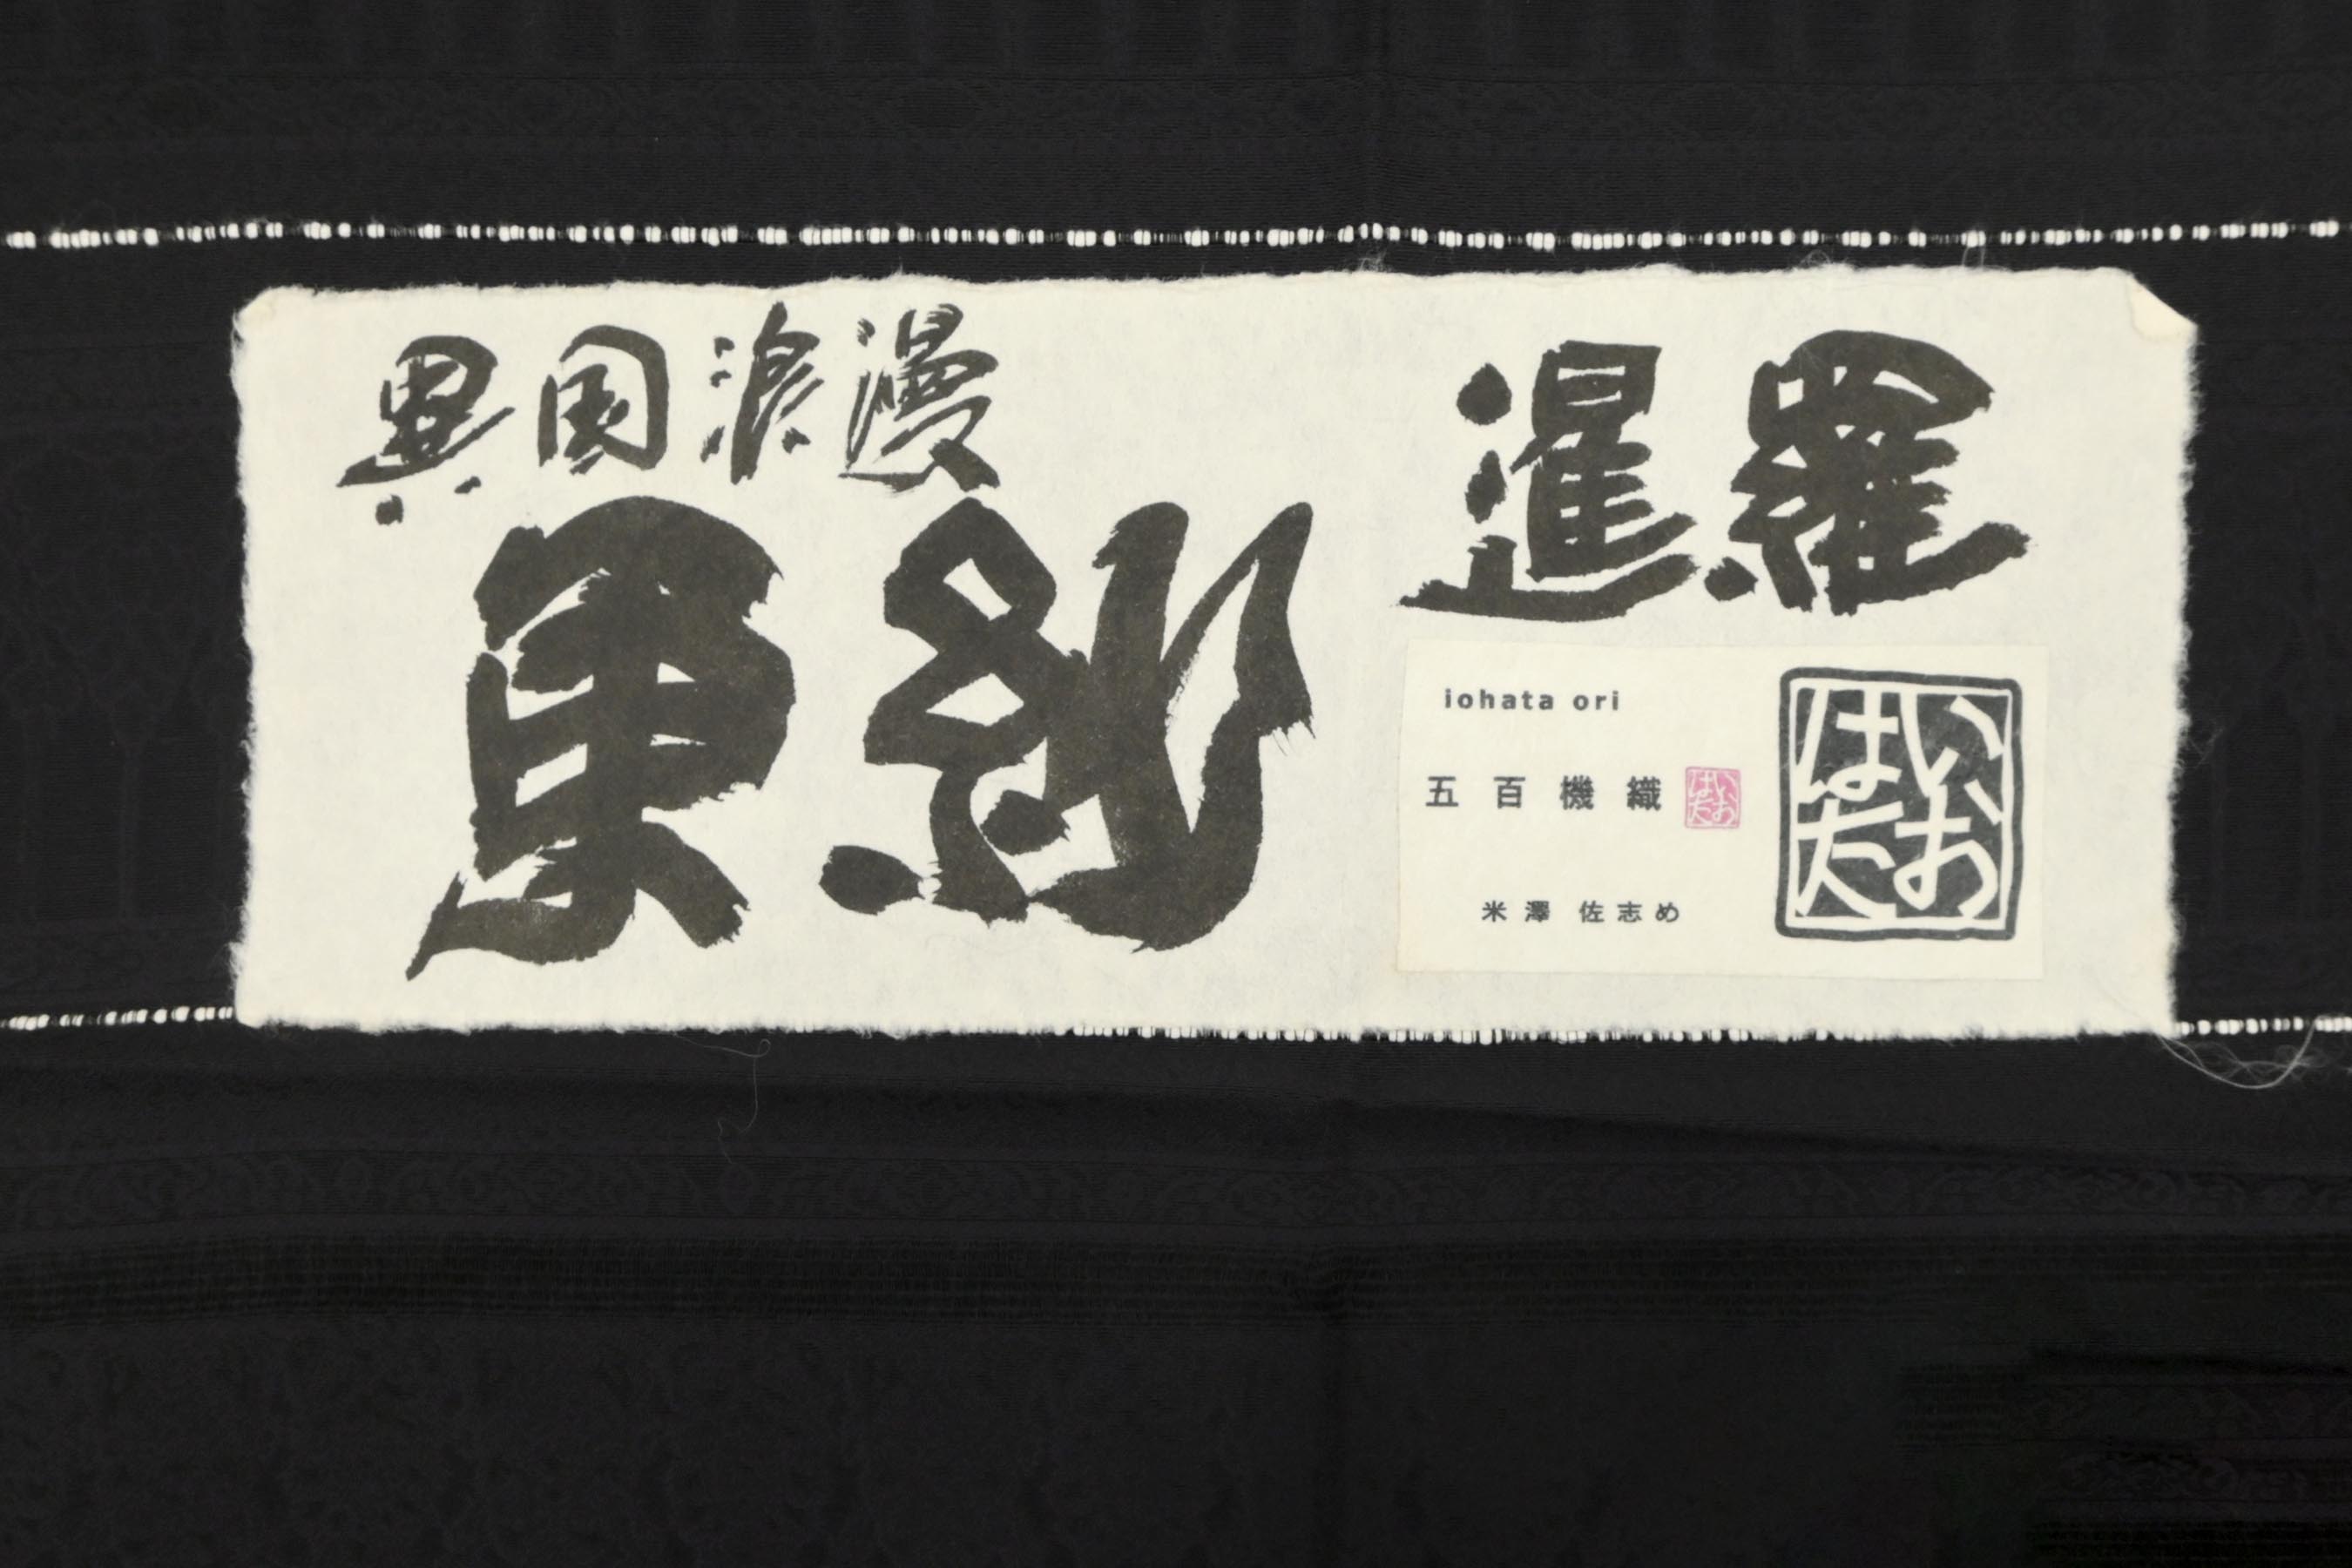 異国浪漫
更紗
暹羅
iohata ori
五百機織
いおはた
米澤 佐志め
いおはた